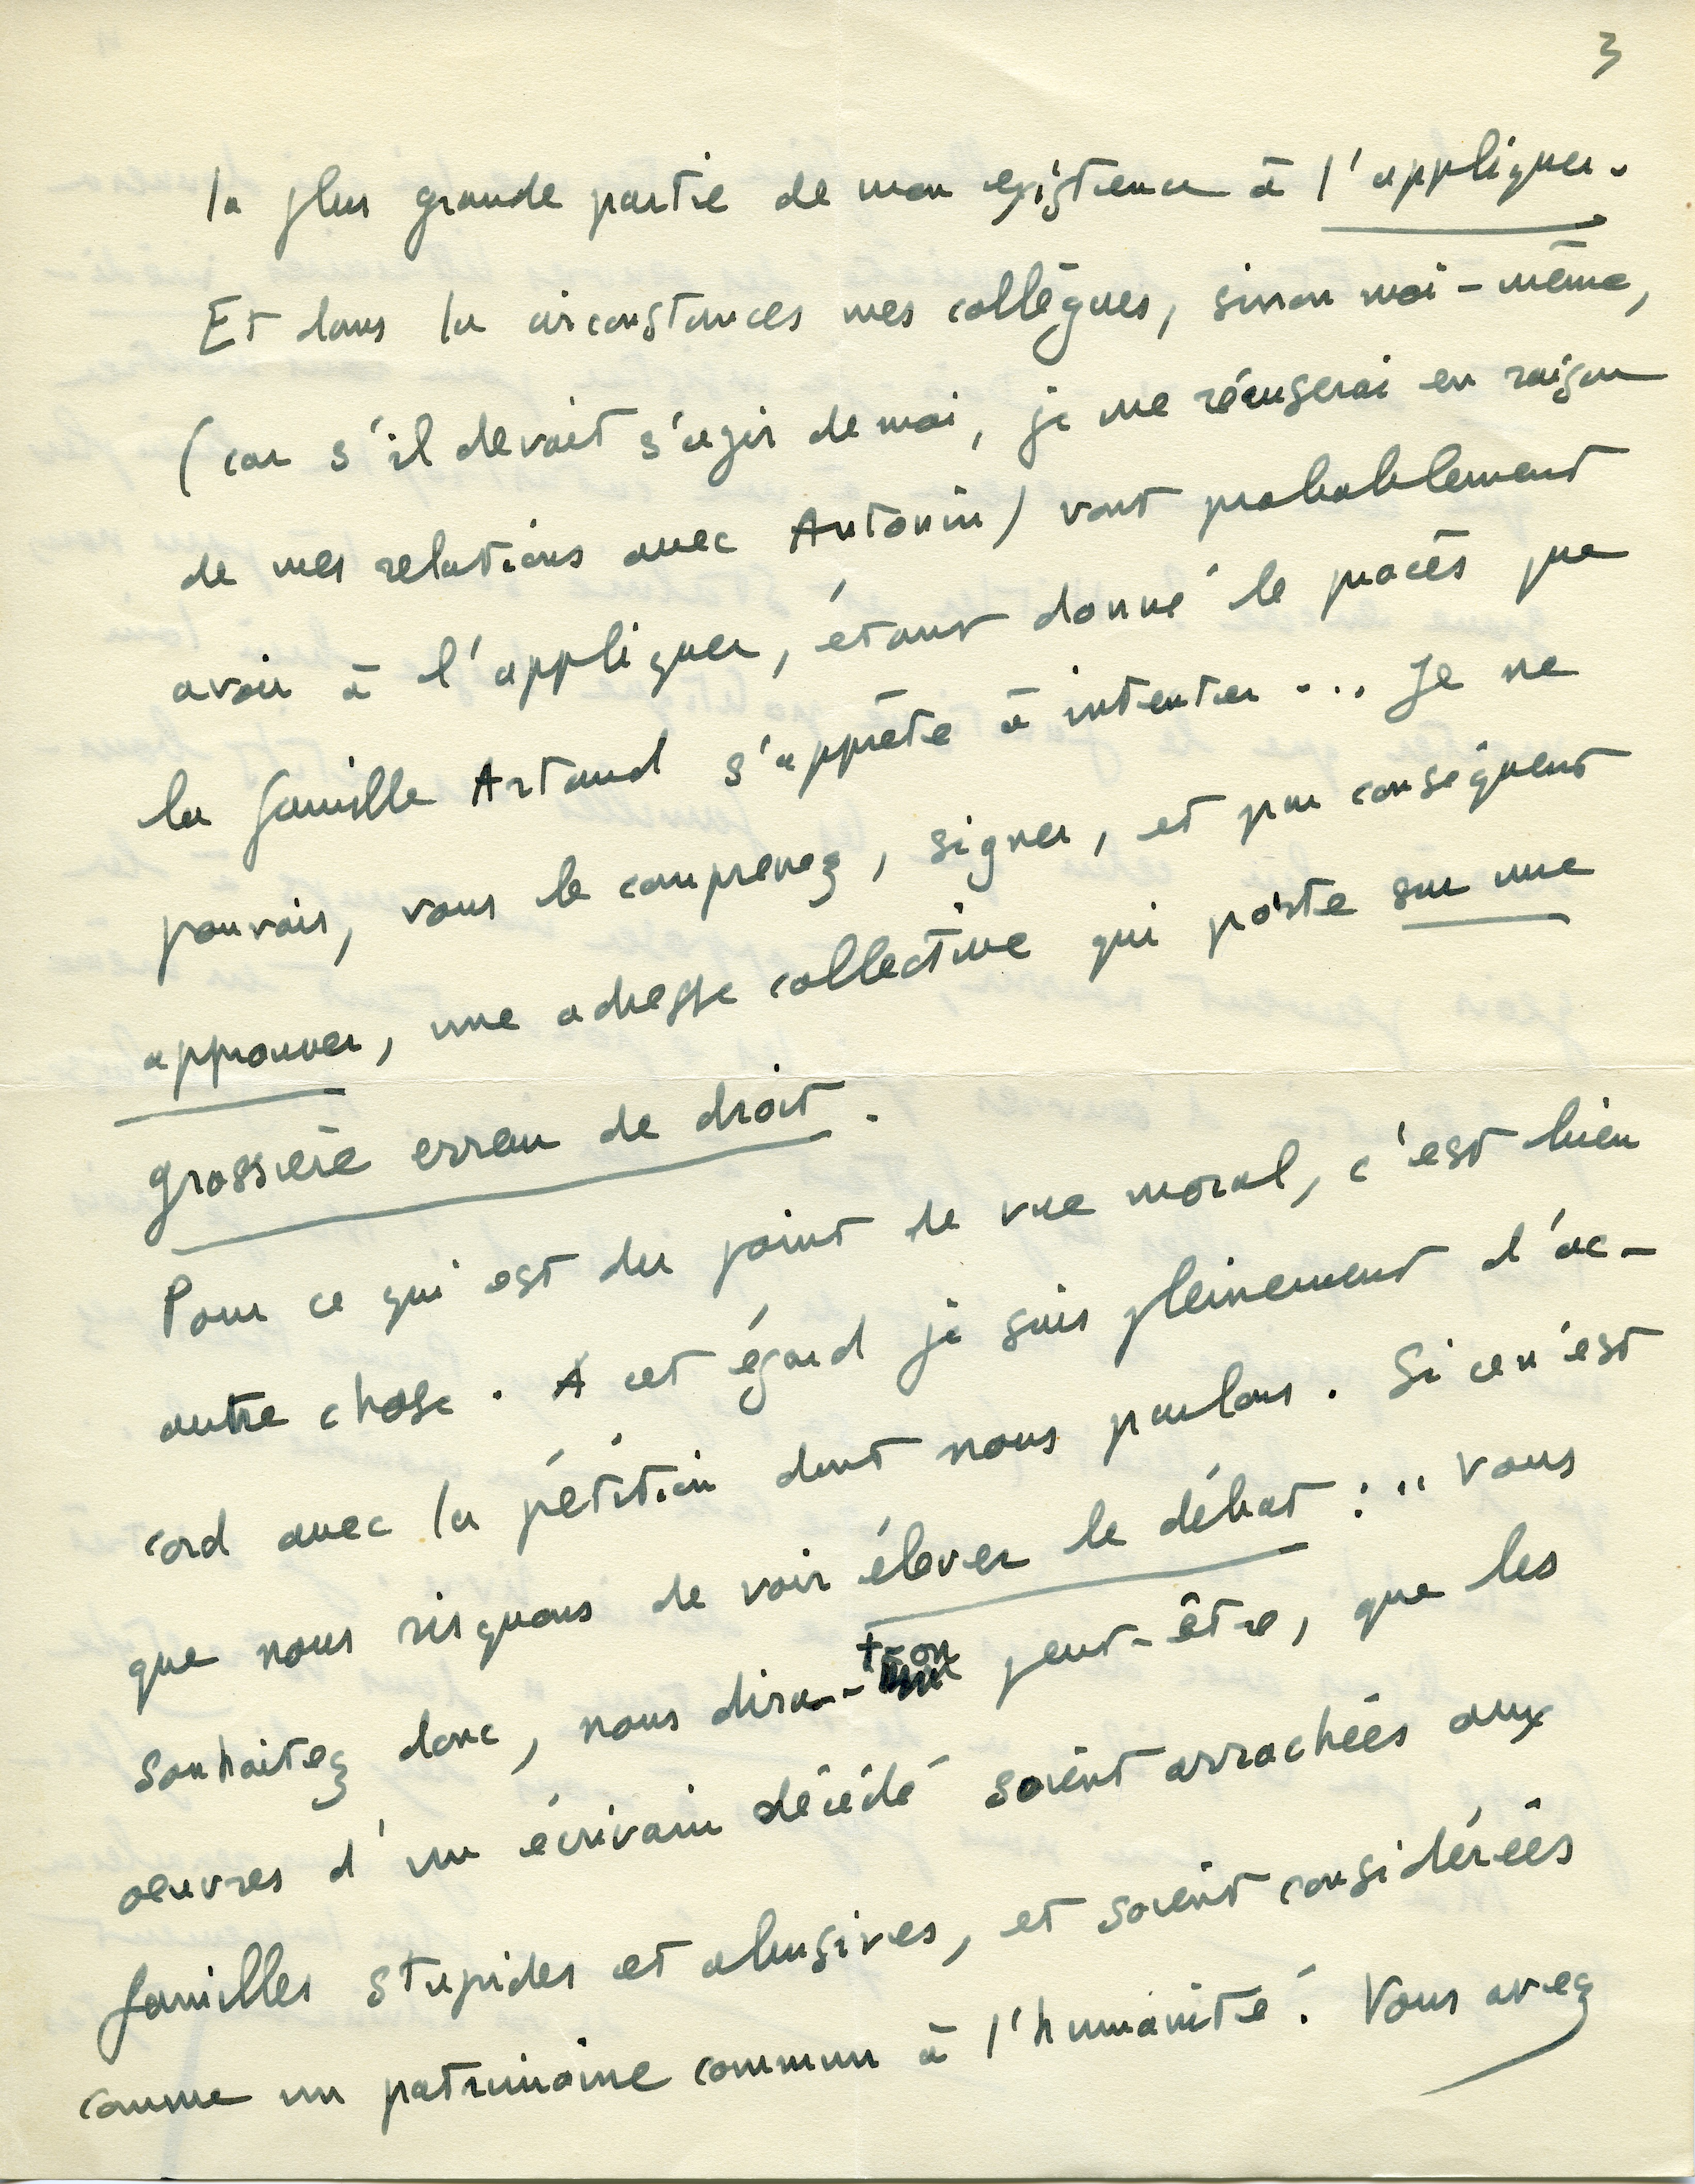 3
la plus grande partie de mon existence à l'appliquer.
Et dans la circonstances mes collègues, sinon moi-même,
(car s'il devait s'agir de moi, je me récuserai en raison
de mes relations avec Antonin) vont probablement
avoir à l'appliquer, étant donné le procès que
la famille Artaud s'apprête à intenter... Je ne
pouvais, vous le comprenez, signer, et par conséquent
approuver, une adresse collective qui porte sur une
grossière erreur de droit.
Pour ce qui est du point de vue moral, c'est bien
autre chose. A cet égard je suis pleinement d'ac-
cord avec la pétition dont nous parlons. Si ce n'est
que nous risquons de voir élever le débat : " Vous
souhaitez donc, nous dira-t-on peut-être, que les
oeuvres d'un écrivain décédé soient arrachées aux
familles stupides et abusives, et soient considérées
comme un patrimoine commun à l'humanité. Vous avez